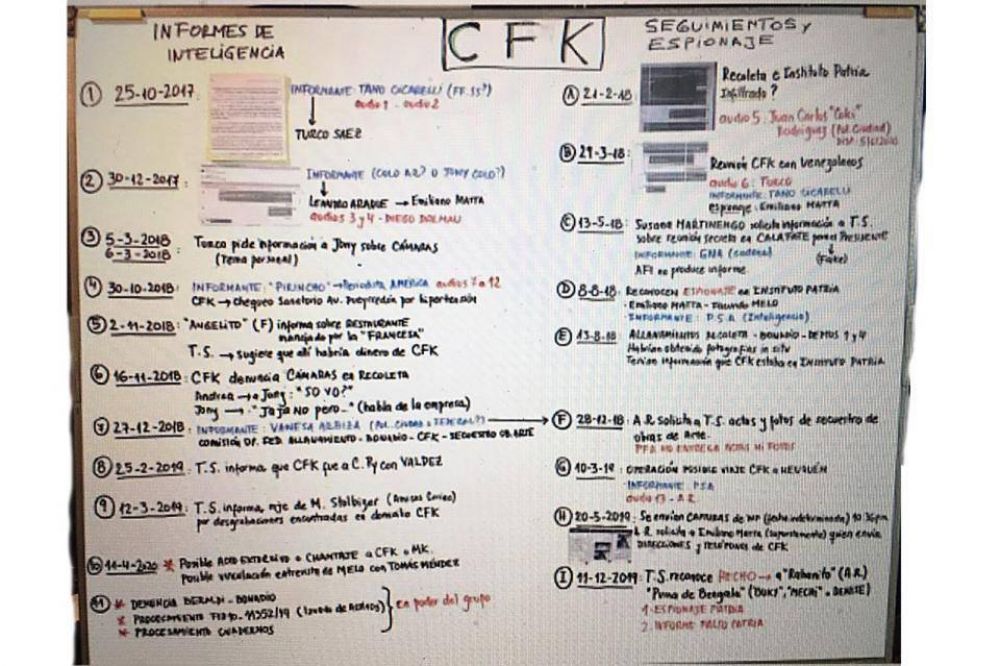 CFK
INFORMES DE
INTELIGENCIA
1 25-10-2017:
INFORMANTE TANO CICARELLI (FF.SS?)
audio 1 - audio 2
TURCO SAEZ
2 30-12-2017:
INFORMANTE (COLO AR? O JONY COLO?)
LEANDRO ARAQUE → Emiliano MATTA
audios 3 y 4 - DIEGO DALMAU
3 5-3-2018
6-3-2018
: Turco pide información a Jony sobre CÁMARAS
(Tema personal)
4 30-10-2018: INFORMANTE: "PIRINCHO" → Periodista AMÉRICA audios 7 a 12
CFK → chequeo Sanatorio Av. Pueyrredón por hipertensión
5 2-11-2018: "ANGELITO" (F) informa sobre RESTAURANTE
manejado por la "FRANCESA"
T.S. → sugiere que allí habría dinero de CFK
6 16-11-2018: CFK denuncia CÁMARAS en RECOLETA
Andrea → a Jony: "SO VO?"
Jony → "JAJA NO pero..." (habla de la empresa)
7 27-12-2018: INFORMANTE: VANESA (POL. CIUDAD o FEDERAL?)
COMISIÓN FED. ALLANAMIENTO - BONADIO - CFK - SECUESTRO OB. ARTE
8 25-2-2019: T.S. informa que CFK fue a C. Py con VALDEZ
9 12-3-2019: T.S. informa, mje de M. Stolbizer (Amigas Correo)
por desgrabaciones encontradas en domicilio CFK
10 11-4-2020 * Posible ACTO EXTORSIVO o CHANTAJE a CFK o MK.
posible vinculación entrevista de MELO con TOMÁS MÉNDEZ
11 * DENUNCIA BERALDI - BONADIO
* PROCEDIMIENTO 11352/19 (Lavado de Activos)
* PROCESAMIENTO CUADERNOS
en poder del grupo
SEGUIMIENTOS y
ESPIONAJE
A 21-2-18:
Recoleta e Instituto Patria
Infiltrado?
audio 5: Juan Carlos "Coki"
Rodriguez (Pol. Ciudad)
B 21-3-18:
Reunión CFK con Venezolanos
audio 6: TURCO
INFORMANTE: TANO CICARELLI
espionaje: Emiliano MATTA
C 13-5-18: Susana MARTINENGO solicita información a T.S.
sobre reunión secreta en CALAFATE para el PRESIDENTE
INFORMANTE: GNA (cadena) (Fake)
AFI no produce informe
D 8-8-18: RECONOCEN ESPIONAJE en INSTITUTO PATRIA
- Emiliano MATTA - Facundo MELO
- INFORMANTE: P.S.A (Inteligencia)
E 13-8-18: ALLANAMIENTOS RECOLETA - BONADIO - DEPTOS 1 y 4
Habrían obtenido fotografías in situ
Tenían información que CFK estaba en INSTITUTO PATRIA
F 28-12-18: A.R solicita a T.S. actas y fotos de secuestro de
obras de Arte.
PFA NO ENTREGA ACTAS NI FOTOS
G 10-3-19: OPERACIÓN POSIBLE VIAJE CFK a NEUQUÉN
INFORMANTE: PSA
audio 13 - A.R.
H 20-5-2019: Se envían CAPTURAS de WP (fecha indeterminada) 10:36pm
A.R. solicita a Emiliano Matta (supuestamente) quien envía
DIRECCIONES y TELÉFONOS de CFK
I 11-12-2019: T.S. reconoce HECHO → a "Rabanito" (A.R.)
"Puma de Bengala" ("DUKI", "MECHI" o DENISE)
1. ESPIONAJE PATRIA
2. INFORME FALSO PATRIA